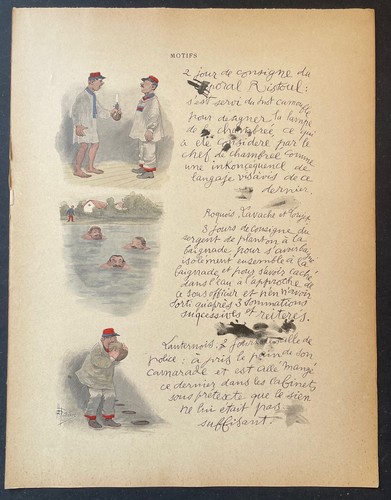 MOTIFS
2 jour de consigne du
poral Ristoul:
s'est servi du mot camoufle
pour désigner la lampe
de la chambrée, ce qui
a été considéré par le
chef de chambrée comme
une inkoncequence de
langage visavis de ce
dernier.
Roquois, Lavache et
3 jours de consigne du
sergent de planton à la
baignade pour s'avoir
isolement ensemble à la
baignade et pour s'avoir caché
dans l'eau à l'approche de
ce sous officier et n'en n'avoir
sorti qu'après 3 sommations
successives et réitérés.
Lanternois. 2 jours de salle de
police: à pris le pain de son
camarade et est allé mangé
ce dernier dans les cabinets
sous prétexte que le sien
ne lui était pas
suffisant.